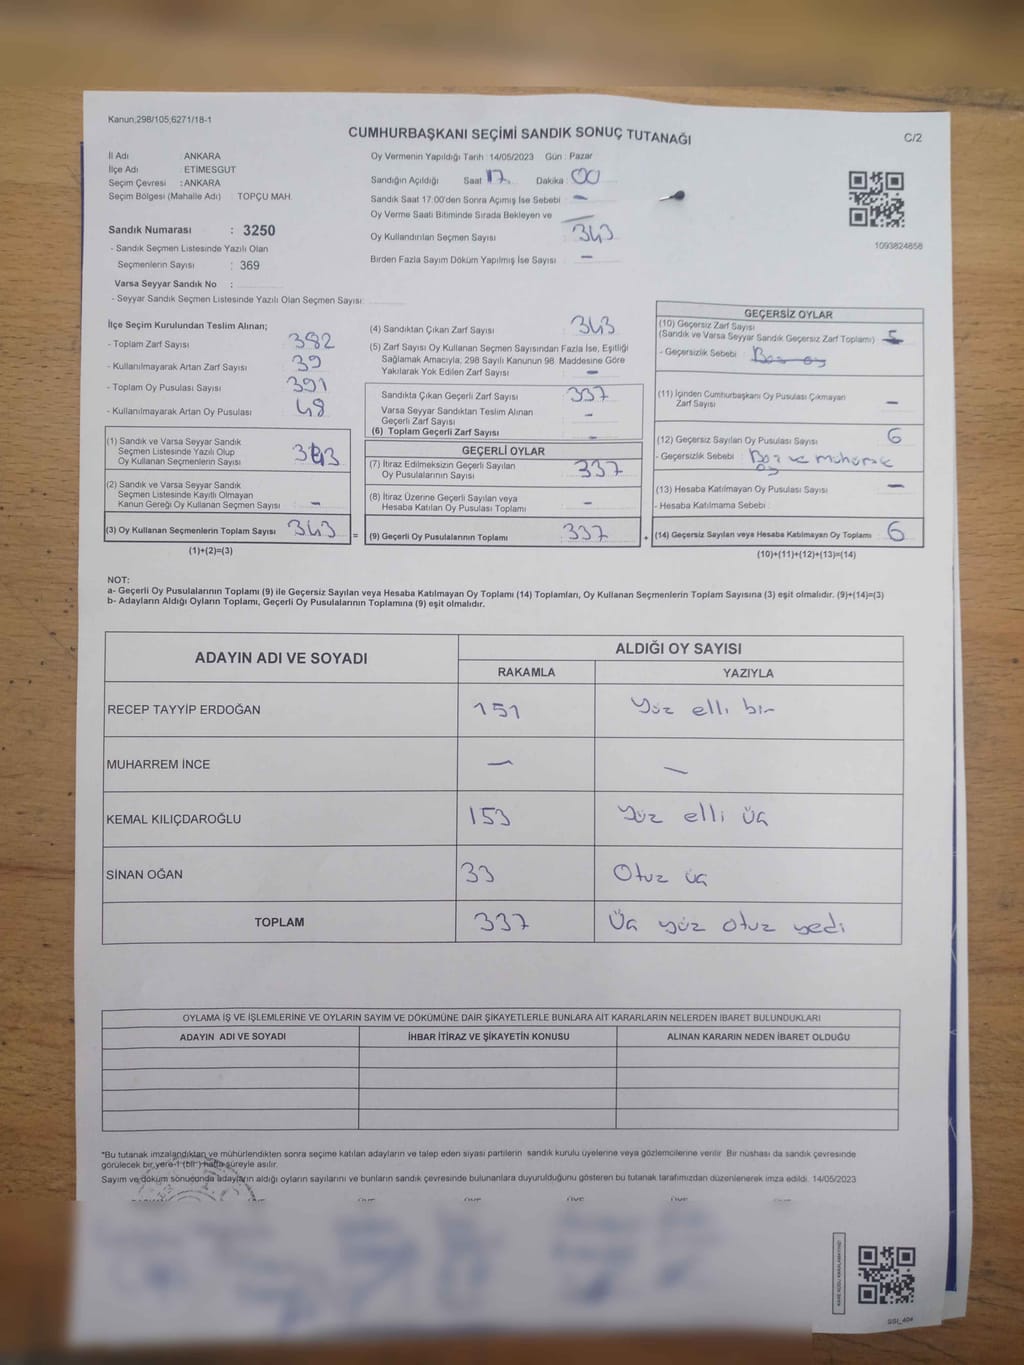 Kanun;298/105;6271/18-1
CUMHURBAŞKANI SEÇİMİ SANDIK SONUÇ TUTANAĞI
C/2
İl Adı ANKARA
İlçe Adı : ETİMESGUT
Seçim Çevresi : ANKARA
Seçim Bölgesi (Mahalle Adı) : TOPÇU MAH.
Sandık Numarası : 3250
- Sandık Seçmen Listesinde Yazılı Olan
Seçmenlerin Sayısı : 369
Varsa Seyyar Sandık No :
- Seyyar Sandık Seçmen Listesinde Yazılı Olan Seçmen Sayısı:
Oy Vermenin Yapıldığı Tarih : 14/05/2023 Gün : Pazar
Sandığın Açıldığı Saat 17 Dakika : 00
Sandık Saat 17:00'den Sonra Açımış İse Sebebi : -
Oy Verme Saati Bitiminde Sırada Bekleyen ve
Oy Kullandırılan Seçmen Sayısı 343
Birden Fazla Sayım Döküm Yapılmış İse Sayısı : -
1093824858
İlçe Seçim Kurulundan Teslim Alınan;
- Toplam Zarf Sayısı : 382
- Kullanılmayarak Artan Zarf Sayısı : 39
- Toplam Oy Pusulası Sayısı : 391
- Kullanılmayarak Artan Oy Pusulası : 48
(1) Sandık ve Varsa Seyyar Sandık
Seçmen Listesinde Yazılı Olup
Oy Kullanan Seçmenlerin Sayısı 343
(2) Sandık ve Varsa Seyyar Sandık
Seçmen Listesinde Kayıtlı Olmayan
Kanun Gereği Oy Kullanan Seçmen Sayısı : -
(3) Oy Kullanan Seçmenlerin Toplam Sayısı 343 =
(1)+(2)=(3)
(4) Sandıktan Çıkan Zarf Sayısı 343
(5) Zarf Sayısı Oy Kullanan Seçmen Sayısından Fazla İse, Eşitliği
Sağlamak Amacıyla, 298 Sayılı Kanunun 98. Maddesine Göre
Yakılarak Yok Edilen Zarf Sayısı : -
Sandıkta Çıkan Geçerli Zarf Sayısı 337
Varsa Seyyar Sandıktan Teslim Alınan
Geçerli Zarf Sayısı : -
(6) Toplam Geçerli Zarf Sayısı -
GEÇERLİ OYLAR
(7) İtiraz Edilmeksizin Geçerli Sayılan
Oy Pusulalarının Sayısı 337
(8) İtiraz Üzerine Geçerli Sayılan veya
Hesaba Katılan Oy Pusulası Toplamı : -
(9) Geçerli Oy Pusulalarının Toplamı 337 +
GEÇERSİZ OYLAR
(10) Geçersiz Zarf Sayısı
(Sandık ve Varsa Seyyar Sandık Geçersiz Zarf Toplamı) :
- Geçersizlik Sebebi : Boş oy
(11) İçinden Cumhurbaşkanı Oy Pusulası Çıkmayan
Zarf Sayısı -
(12) Geçersiz Sayılan Oy Pusulası Sayısı 6
- Geçersizlik Sebebi : Boş ve mühürsüz
oy
(13) Hesaba Katılmayan Oy Pusulası Sayısı : -
- Hesaba Katılmama Sebebi :
(14) Geçersiz Sayılan veya Hesaba Katılmayan Oy Toplamı : 6
(10)+(11)+(12)+(13)=(14)
NOT:
a- Geçerli Oy Pusulalarının Toplamı (9) ile Geçersiz Sayılan veya Hesaba Katılmayan Oy Toplamı (14) Toplamları, Oy Kullanan Seçmenlerin Toplam Sayısına (3) eşit olmalıdır. (9)+(14)=(3)
b- Adayların Aldığı Oyların Toplamı, Geçerli Oy Pusulalarının Toplamına (9) eşit olmalıdır.
ADAYIN ADI VE SOYADI
ALDIĞI OY SAYISI
RAKAMLA YAZIYLA
RECEP TAYYİP ERDOĞAN 151 Yüz elli bir
MUHARREM İNCE - -
KEMAL KILIÇDAROĞLU 153 Yüz elli üç
SİNAN OĞAN 33 Otuz üç
TOPLAM 337 Üç yüz otuz yedi
OYLAMA İŞ VE İŞLEMLERİNE VE OYLARIN SAYIM VE DÖKÜMÜNE DAİR ŞİKAYETLERLE BUNLARA AİT KARARLARIN NELERDEN İBARET BULUNDUKLARI
ADAYIN ADI VE SOYADI İHBAR İTİRAZ VE ŞİKAYETİN KONUSU ALINAN KARARIN NEDEN İBARET OLDUĞU
*Bu tutanak imzalandıktan ve mühürlendikten sonra seçime katılan adayların ve talep eden siyasi partilerin sandık kurulu üyelerine veya gözlemcilerine verilir. Bir nüshası da sandık çevresinde
görülecek bir yere 1 (bir) hafta süreyle asılır.
Sayım ve döküm sonucunda adayların aldığı oyların sayılarını ve bunların sandık çevresinde bulunanlara duyurulduğunu gösteren bu tutanak tarafımızdan düzenlenerek imza edildi. 14/05/2023
SSI_404